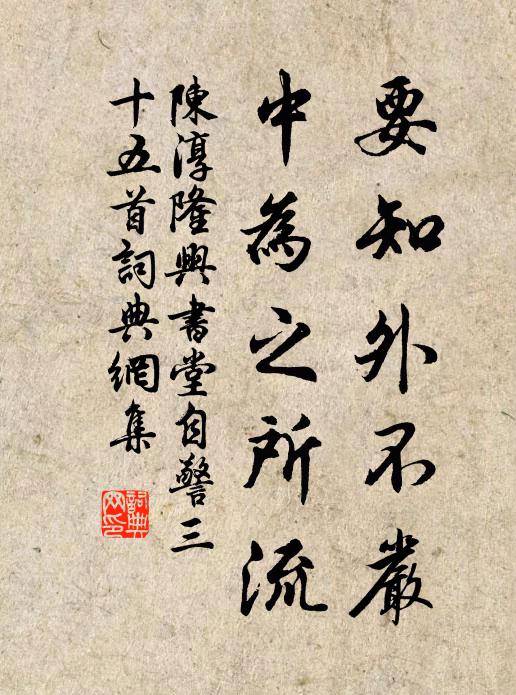 要知外不嚴
中為之所流
陳淳隆興書堂自警三
十五首詞典網集
詞典網印